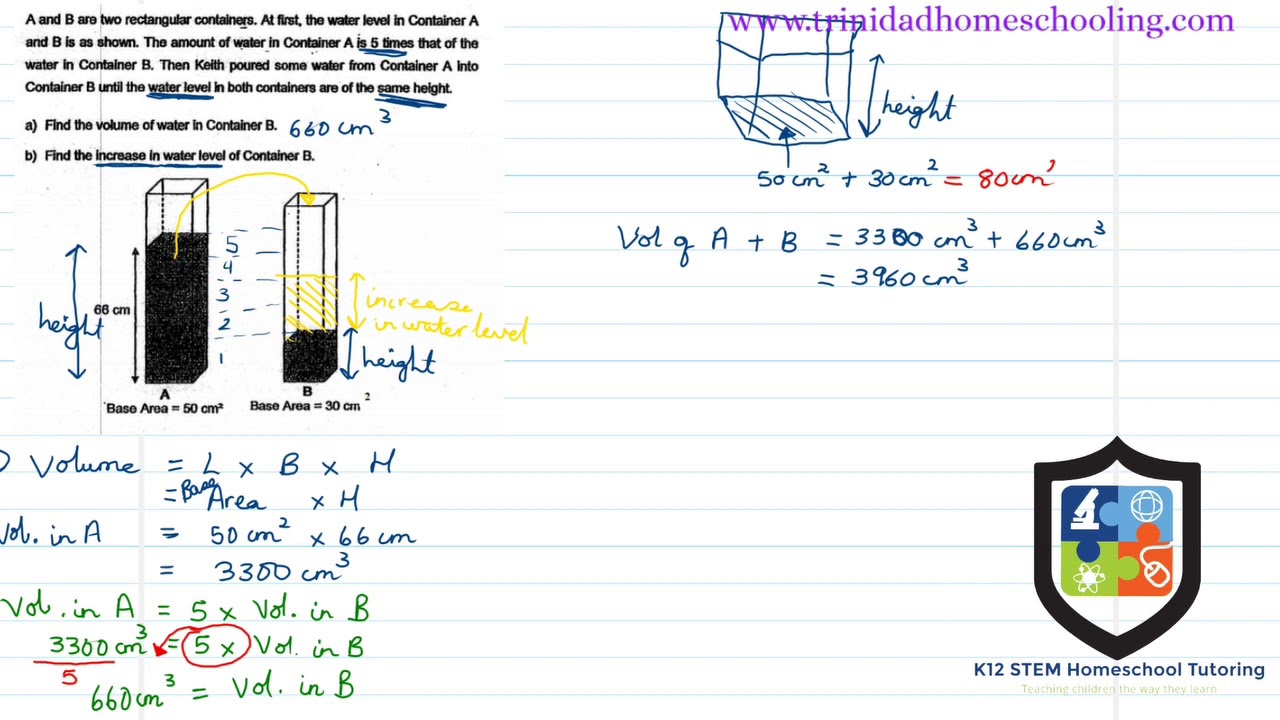 A and B are two rectangular containers. At first, the water level in Container A
and B is as shown. The amount of water in Container A is 5 times that of the
water in Container B. Then Keith poured some water from Container A into
Container B until the water level in both containers are of the same height.
a) Find the volume of water in Container B. 660 cm³
b) Find the increase in water level of Container B.
5
4
3
2
1
66 cm
height
increase
in water level
height
A
Base Area = 50 cm²
B
Base Area = 30 cm ²
Volume = L × B × H
= Base Area × H
Vol. in A = 50 cm² × 66 cm
= 3300 cm³
Vol. in A = 5 × Vol. in B
3300 cm³ = 5 × Vol. in B
5
660 cm³ = Vol. in B
www.trinidadhomeschooling.com
height
50 cm² + 30 cm² = 80 cm²
Vol of A + B = 3300 cm³ + 660 cm³
= 3960 cm³
K12 STEM Homeschool Tutoring
Teaching children the way they learn